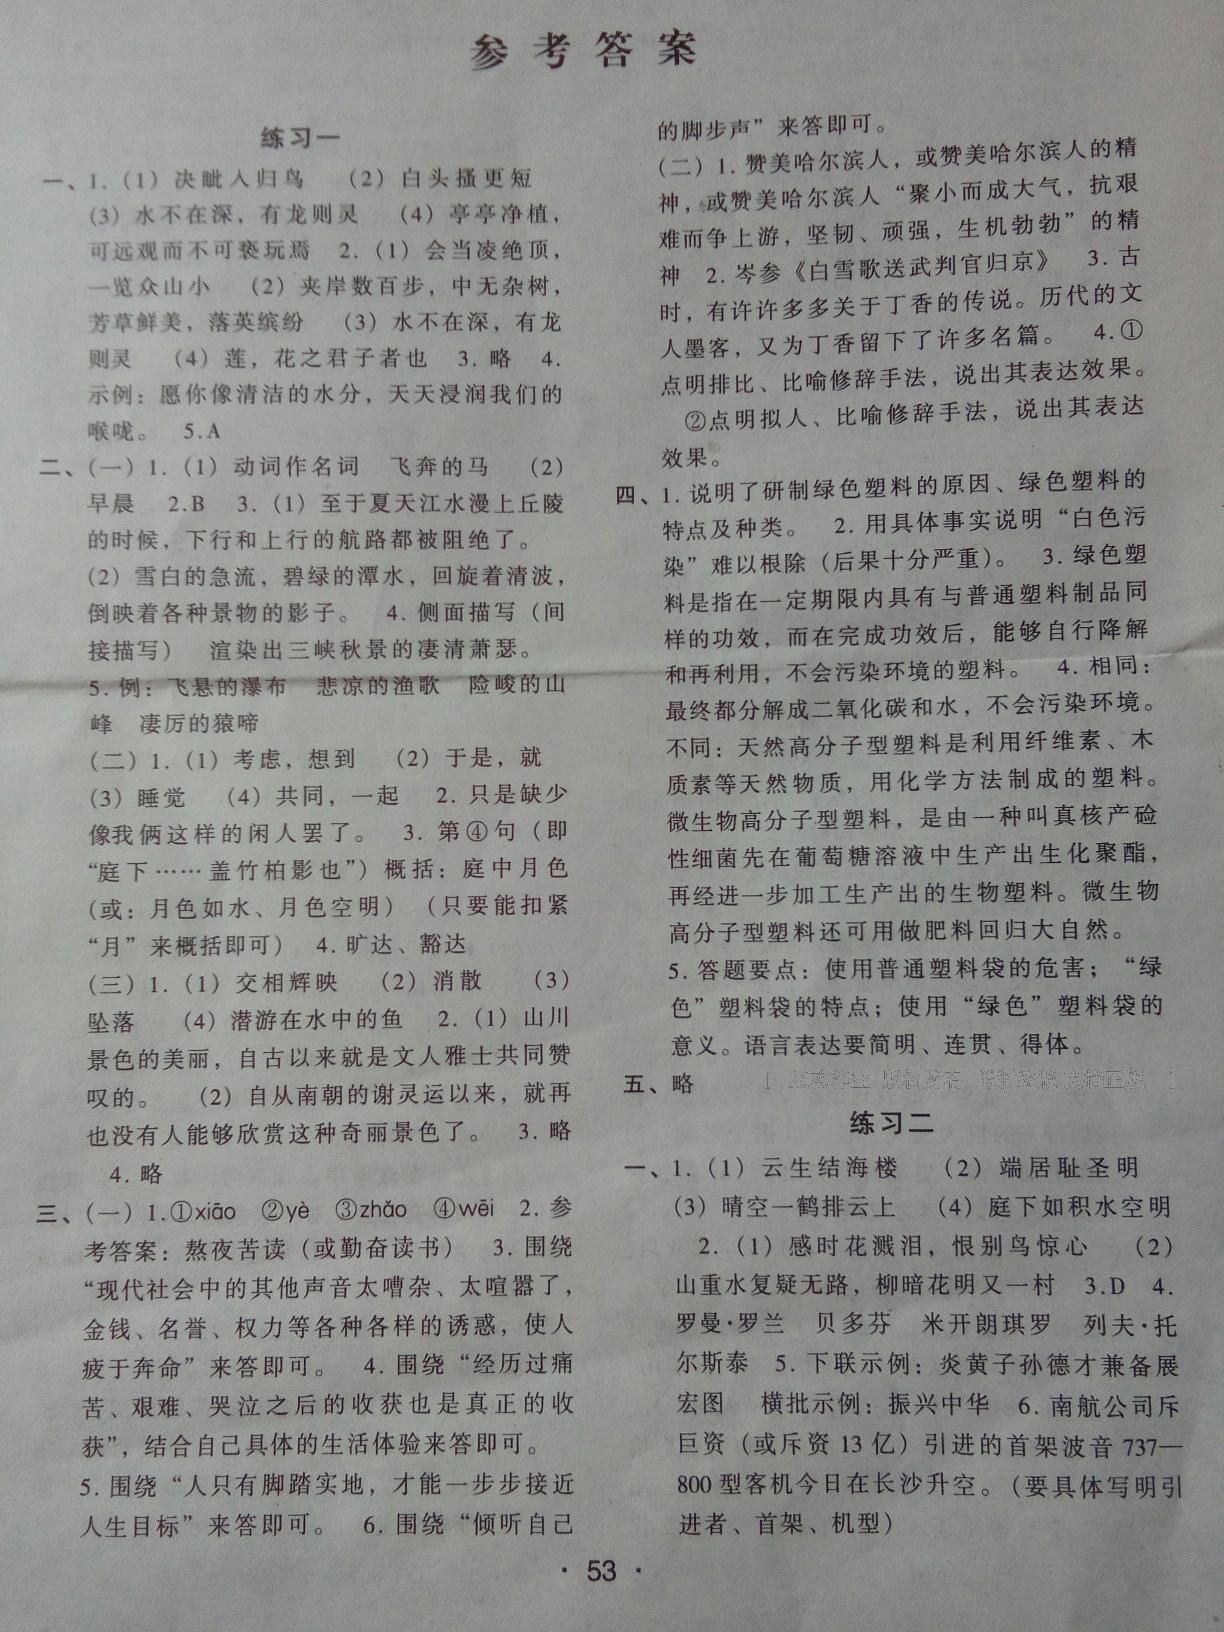 参考答案
练习一
一、1.（1）决眦入归鸟 （2）白头搔更短
（3）水不在深，有龙则灵 （4）亭亭净植，
可远观而不可亵玩焉 2.（1）会当凌绝顶，
一览众山小 （2）夹岸数百步，中无杂树，
芳草鲜美，落英缤纷 （3）水不在深，有龙
则灵 （4）莲，花之君子者也 3. 略 4.
示例：愿你像清洁的水分，天天浸润我们的
喉咙。 5.A
二、（一）1.（1）动词作名词 飞奔的马 （2）
早晨 2.B 3.（1）至于夏天江水漫上丘陵
的时候，下行和上行的航路都被阻绝了。
（2）雪白的急流，碧绿的潭水，回旋着清波，
倒映着各种景物的影子。 4. 侧面描写（间
接描写） 渲染出三峡秋景的凄清萧瑟。
5. 例：飞悬的瀑布 悲凉的渔歌 险峻的山
峰 凄厉的猿啼
（二）1.（1）考虑，想到 （2）于是，就
（3）睡觉 （4）共同，一起 2. 只是缺少
像我俩这样的闲人罢了。 3. 第④句（即
“庭下……盖竹柏影也”）概括：庭中月色
（或：月色如水、月色空明）（只要能扣紧
“月”来概括即可） 4. 旷达、豁达
（三）1.（1）交相辉映 （2）消散 （3）
坠落 （4）潜游在水中的鱼 2.（1）山川
景色的美丽，自古以来就是文人雅士共同赞
叹的。 （2）自从南朝的谢灵运以来，就再
也没有人能够欣赏这种奇丽景色了。 3. 略
4. 略
三、（一）1.①xiāo ②yè ③zhǎo ④wēi 2. 参
考答案：熬夜苦读（或勤奋读书） 3. 围绕
“现代社会中的其他声音太嘈杂、太喧嚣了，
金钱、名誉、权力等各种各样的诱惑，使人
疲于奔命”来答即可。 4. 围绕“经历过痛
苦、艰难、哭泣之后的收获也是真正的收
获”，结合自己具体的生活体验来答即可。
5. 围绕“人只有脚踏实地，才能一步步接近
人生目标”来答即可。 6. 围绕“倾听自己
的脚步声”来答即可。
（二）1. 赞美哈尔滨人，或赞美哈尔滨人的精
神，或赞美哈尔滨人“聚小而成大气，抗艰
难而争上游，坚韧、顽强，生机勃勃”的精
神 2. 岑参《白雪歌送武判官归京》 3. 古
时，有许许多多关于丁香的传说。历代的文
人墨客，又为丁香留下了许多名篇。 4.①
点明排比、比喻修辞手法，说出其表达效果。
②点明拟人、比喻修辞手法，说出其表达
效果。
四、1. 说明了研制绿色塑料的原因、绿色塑料的
特点及种类。 2. 用具体事实说明“白色污
染”难以根除（后果十分严重）。 3. 绿色塑
料是指在一定期限内具有与普通塑料制品同
样的功效，而在完成功效后，能够自行降解
和再利用，不会污染环境的塑料。 4. 相同：
最终都分解成二氧化碳和水，不会污染环境。
不同：天然高分子型塑料是利用纤维素、木
质素等天然物质，用化学方法制成的塑料。
微生物高分子型塑料，是由一种叫真核产硷
性细菌先在葡萄糖溶液中生产出生化聚酯，
再经进一步加工生产出的生物塑料。微生物
高分子型塑料还可用做肥料回归大自然。
5. 答题要点：使用普通塑料袋的危害；“绿
色”塑料袋的特点；使用“绿色”塑料袋的
意义。语言表达要简明、连贯、得体。
五、略
练习二
一、1.（1）云生结海楼 （2）端居耻圣明
（3）晴空一鹤排云上 （4）庭下如积水空明
2.（1）感时花溅泪，恨别鸟惊心 （2）
山重水复疑无路，柳暗花明又一村 3.D 4.
罗曼·罗兰 贝多芬 米开朗琪罗 列夫·托
尔斯泰 5. 下联示例：炎黄子孙德才兼备展
宏图 横批示例：振兴中华 6. 南航公司斥
巨资（或斥资 13 亿）引进的首架波音 737—
800 型客机今日在长沙升空。（要具体写明引
进者、首架、机型）
· 53 ·